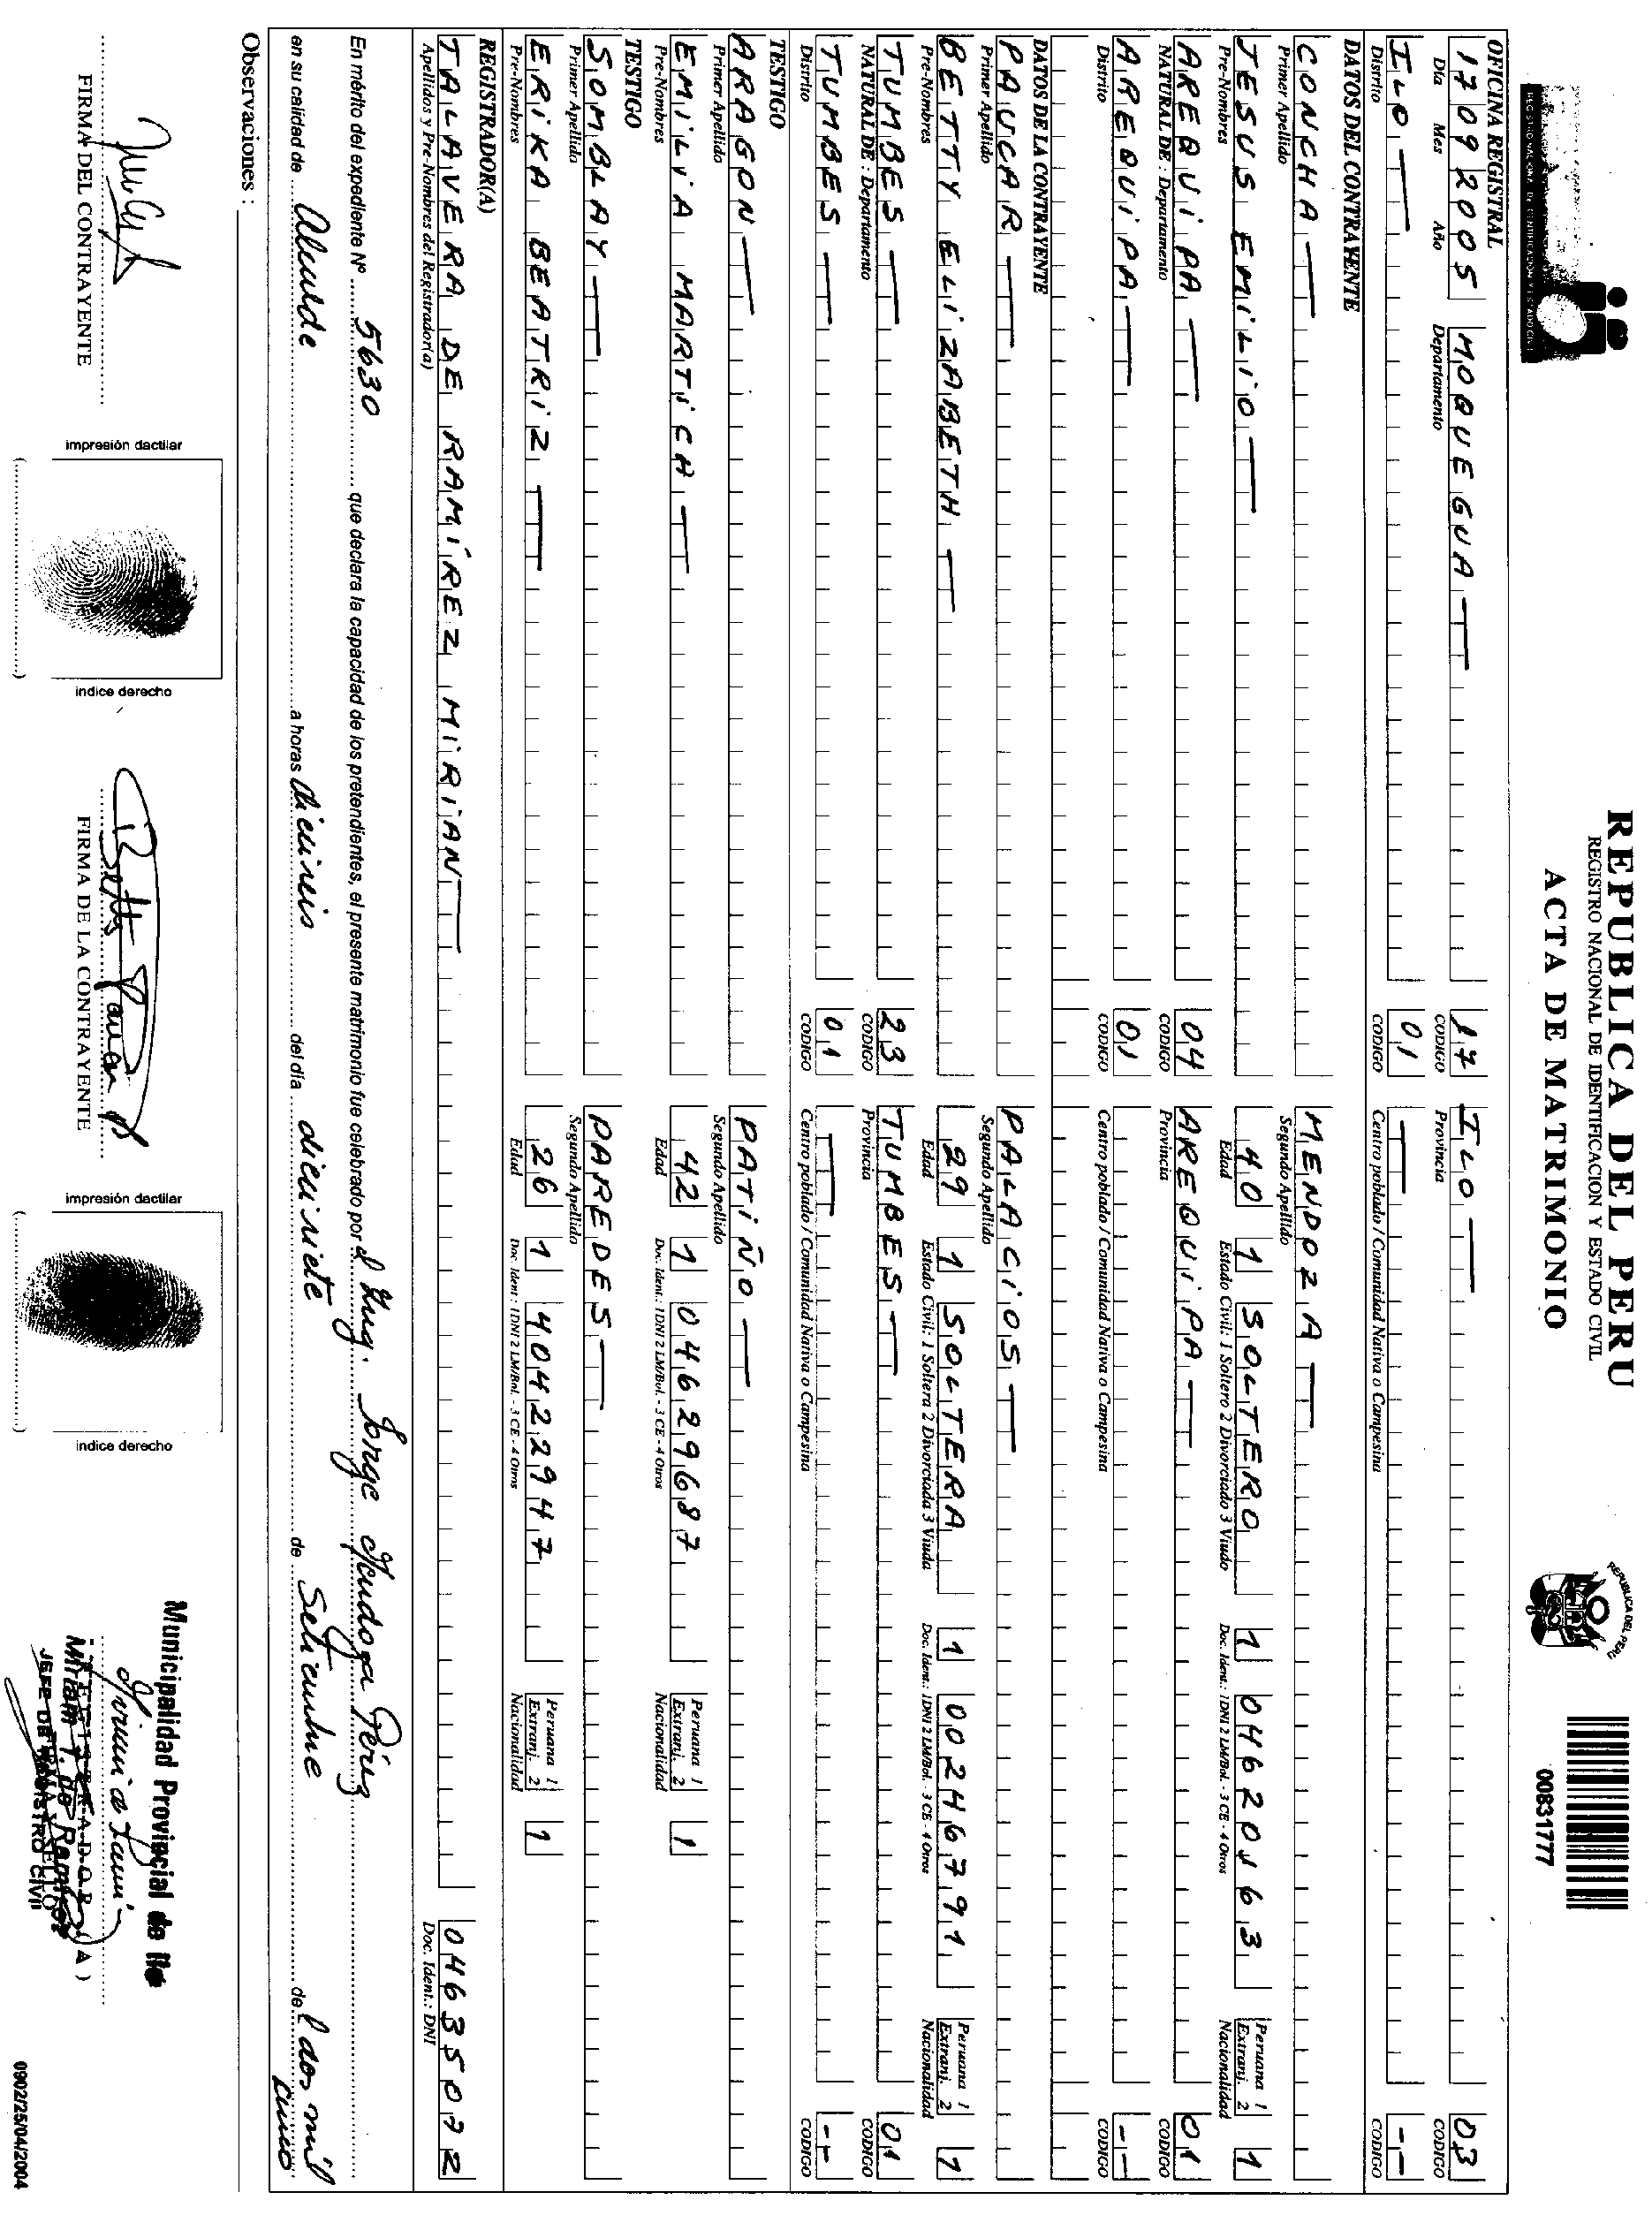 REPUBLICA DEL PERU
REGISTRO NACIONAL DE IDENTIFICACION Y ESTADO CIVIL
ACTA DE MATRIMONIO
REPUBLICA DEL PERU
00831777
OFICINA REGISTRAL
17 09 2005 MOQUEGUA 17 ILO 03
Día Mes Año Departamento CODIGO Provincia CODIGO
ILO 01 --
Distrito CODIGO Centro poblado / Comunidad Nativa o Campesina CODIGO
DATOS DEL CONTRAYENTE
CONCHA MENDOZA
Primer Apellido Segundo Apellido
JESUS EMILIO 40 1 SOLTERO 1 04620163 Peruana 1 Extranj. 2 1
Pre-Nombres Edad Estado Civil: 1 Soltero 2 Divorciado 3 Viudo Doc. Ident.: 1DNI 2 LM/Bol. - 3 CE - 4 Otros Nacionalidad
AREQUIPA 04 AREQUIPA 01
NATURAL DE : Departamento CODIGO Provincia CODIGO
AREQUIPA 01 --
Distrito CODIGO Centro poblado / Comunidad Nativa o Campesina CODIGO
DATOS DE LA CONTRAYENTE
PAUCAR PALACIOS
Primer Apellido Segundo Apellido
BETTY ELIZABETH 29 1 SOLTERA 1 00246791 Peruana 1 Extranj. 2 1
Pre-Nombres Edad Estado Civil: 1 Soltera 2 Divorciada 3 Viuda Doc. Ident.: 1DNI 2 LM/Bol. 3 CE - 4 Otros Nacionalidad
TUMBES 23 TUMBES 01
NATURAL DE : Departamento CODIGO Provincia CODIGO
TUMBES 01 --
Distrito CODIGO Centro poblado / Comunidad Nativa o Campesina CODIGO
TESTIGO
ARAGON PATIÑO
Primer Apellido Segundo Apellido
EMILIA MARTICH 42 1 04629687 Peruana 1 Extranj. 2 1
Pre-Nombres Edad Doc. Ident.: 1DNI 2 LM/Bol. - 3 CE - 4 Otros Nacionalidad
TESTIGO
SOMBLAY PAREDES
Primer Apellido Segundo Apellido
ERIKA BEATRIZ 26 1 40422947 Peruana 1 Extranj. 2 1
Pre-Nombres Edad Doc. Ident : 1DNI 2 LM/Bol. - 3 CE - 4 Otros Nacionalidad
REGISTRADOR(A)
TALAVERA DE RAMÍREZ MIRIAN 04635072
Apellidos y Pre-Nombres del Registrador(a) Doc. Ident.: DNI
En mérito del expediente Nº 5630 que declara la capacidad de los pretendientes, el presente matrimonio fue celebrado por el Ing. Jorge Mendoza Pérez
en su calidad de Alcalde a horas dieciseis del día diecisiete de Setiembre de l dos mil cinco
Observaciones :
FIRMA DEL CONTRAYENTE
impresión dactilar
indice derecho
Betty Paucar P
FIRMA DE LA CONTRAYENTE
impresión dactilar
indice derecho
Municipalidad Provincial de Ilo
Miriam T. de Ramírez
JEFE DE REGISTRO CIVIL
0902/25/04/2004